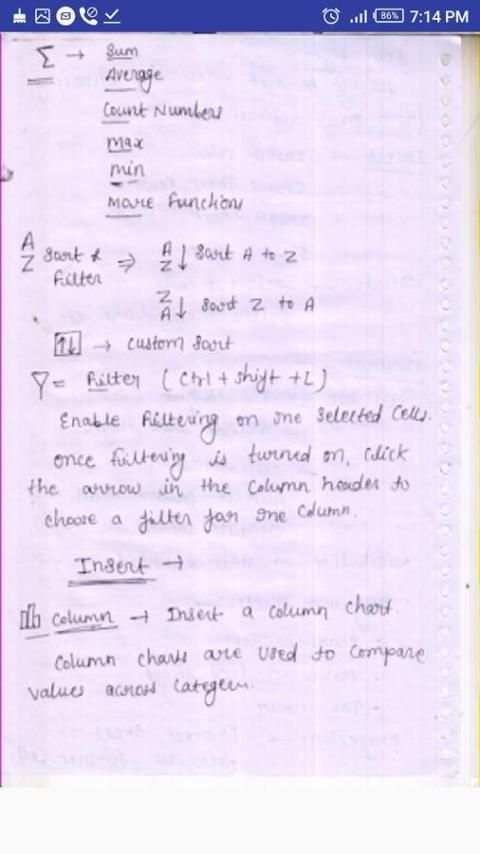 86% 7:14 PM
Σ → Sum
Average
Count Numbers
Max
Min
More Function
A
Z Sort & Filter ⇒ A Z ↓ Sort A to Z
Z A ↓ Sort Z to A
↑↓ → Custom Sort
Filter (Ctrl + Shift + L)
Enable Filtering on one Selected Cells.
once filtering is turned on, click
the arrow in the column header to
choose a filter for one Column.
Insert →
Column → Insert a column chart.
Column charts are used to Compare
values across